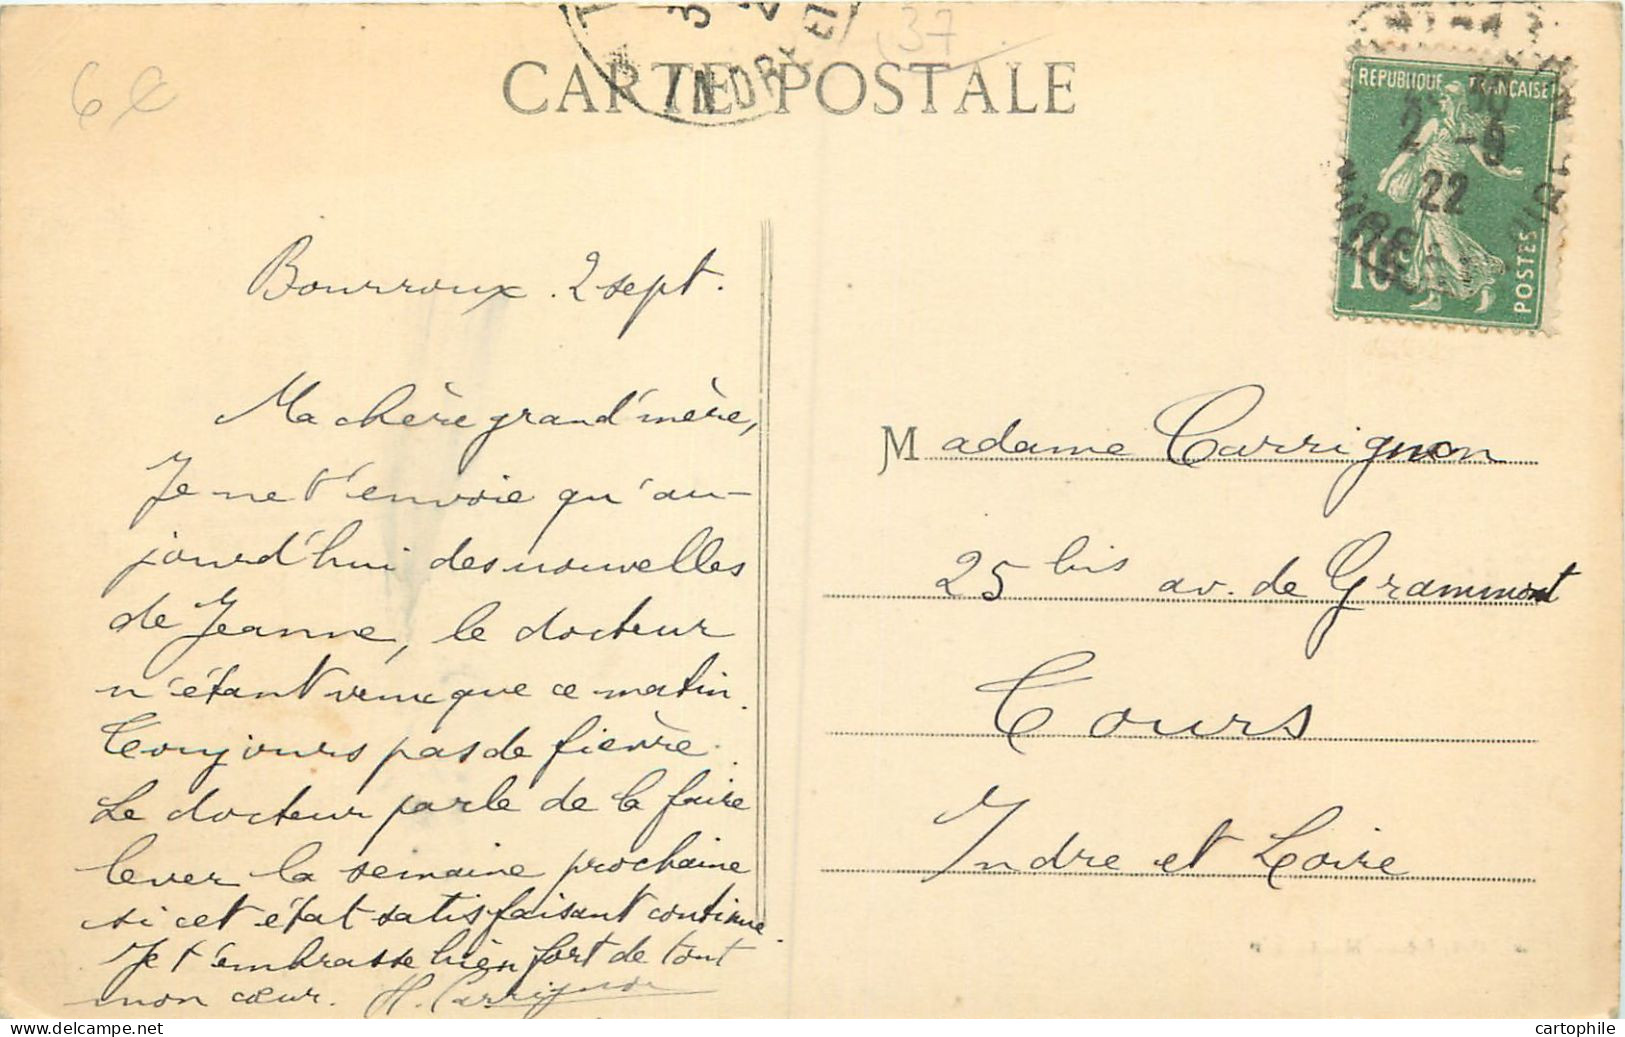 6€
37
CARTE POSTALE
REPUBLIQUE FRANÇAISE
2 - 9
22
10c
POSTES
INDRE ET
Bourroux. 2 sept.
Ma chère grand'mère,
Je ne t'envoie qu'au-
jourd'hui des nouvelles
de Jeanne, le docteur
n'étant venu que ce matin.
Toujours pas de fièvre.
Le docteur parle de la faire
lever la semaine prochaine
si cet état satisfaisant continue.
Je t'embrasse bien fort de tout
mon cœur. H. Carrignon
Madame Carrignon
25 bis av. de Grammont
Tours
Indre et Loire
cartophile